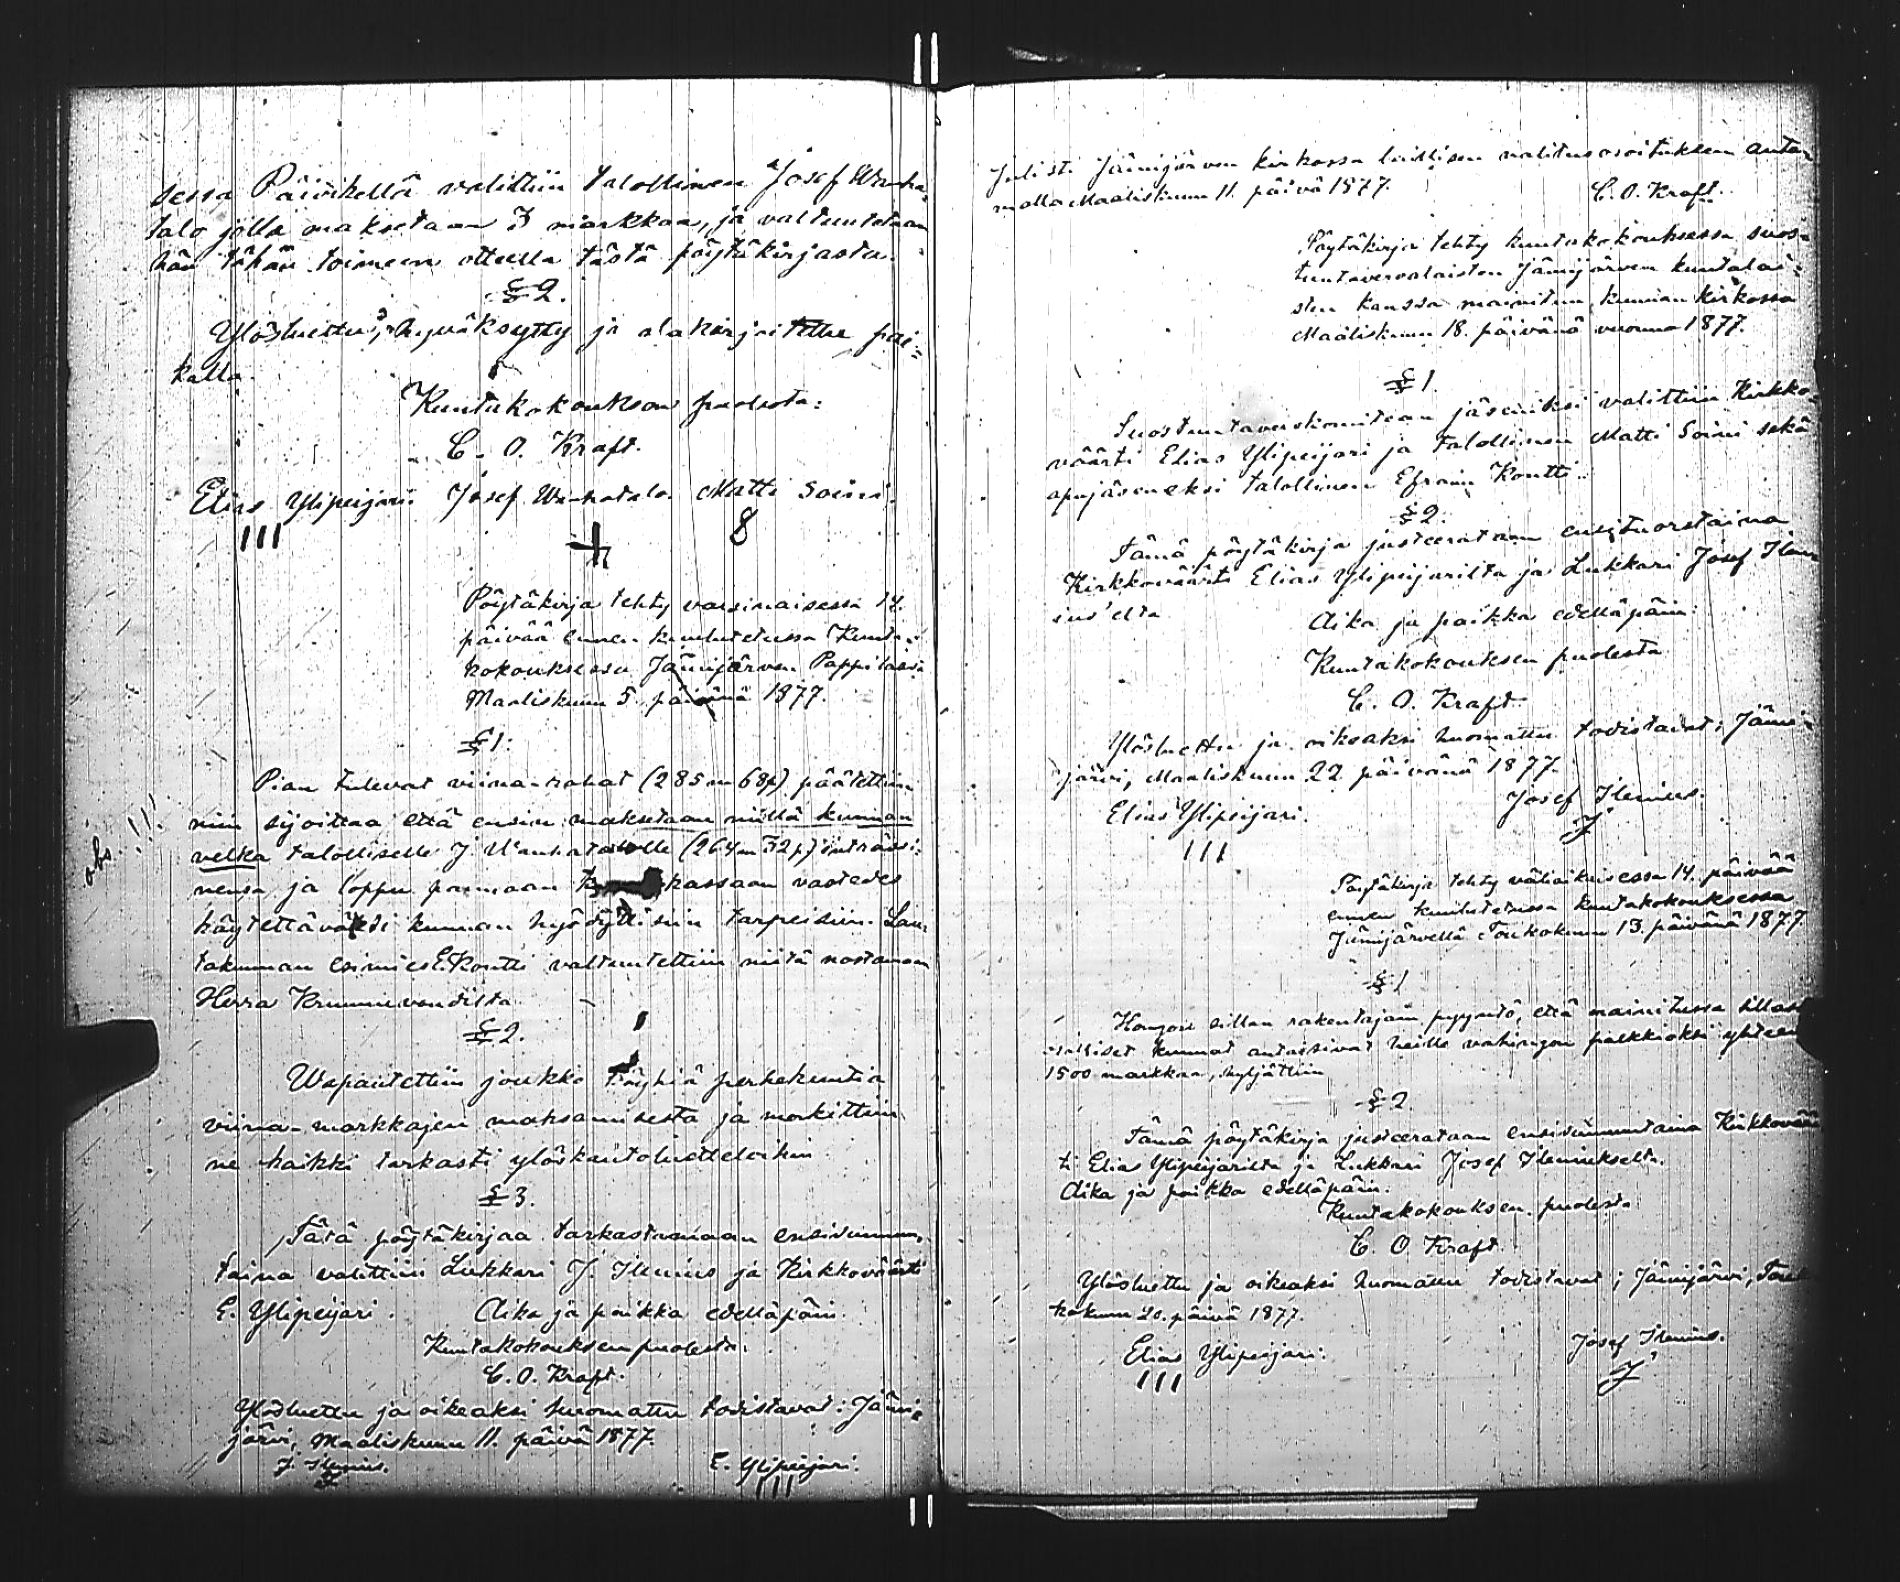 sessa Päivikellä valittiin talollinen Josef Wanha-
talo jolla maksetaan 3 markkaa, ja valtuutetaan
hän tähän toimeen otteella tästä pöytäkirjasta.
§ 2.
Ylösluettu, hyväksytty ja alakirjoitettu pai-
kalla.
Kuntakokouksen puolesta:
C. O. Kraft.
Elias Ylipeijari Josef Wanhatalo Matti Soini.
III 8
Pöytäkirja tehty varsinaisessa 14.
päivää ennen kuulutetussa Kunta-
kokouksessa Jämijärven Pappilassa
Maaliskuun 5 päivänä 1877.
§ 1.
Pian tulevat viina-rahat (285 m 68 p) päätettiin
niin sijoittaa että ensin maksetaan niillä kunnan
velka talolliselle J. Wanhatalolle (264 m 32 p) inträssi-
nensä ja loppu pannaan kassaan vastedes
käytettäväksi kunnan hyödyllisiin tarpeisiin. Lau-
takunnan esimies E. Kontti valtuutettiin niitä nostamaan
Herra Krummevoudilta.
obs. !!!
§ 2.
Wapautettiin joukko köyhiä perhekuntia
viina-markkajen maksamisesta ja merkittiin
ne kaikki tarkasti ylöskantoluetteloihin.
§ 3.
Tätä pöytäkirjaa tarkastamaan ensisunnun-
taina valittiin Lukkari J. Ilenius ja Kirkkoväärti
E. Ylipeijari. Aika ja paikka edelläpäin.
Kuntakokouksen puolesta:
C. O. Kraft.
Ylösluettu ja oikeaksi huomattu todistavat: Jämi-
järvi, Maaliskuun 11. päivä 1877.
J. Ilenius. E. Ylipeijari.
J III
Julisti Jämijärven kirkossa laillisen valitusosoituksen anta-
malla Maaliskuun 11. päivä 1877.
C. O. Kraft.
Pöytäkirja tehty kuntakokouksessa suos-
tuntaveroalaisten Jämijärven kuntalai-
sten kanssa mainitun kunnan kirkossa
Maaliskuun 18. päivänä vuonna 1877.
§ 1.
Suostuntaverokomitean jäseniksi valittiin Kirkko-
väärti Elias Ylipeijari ja talollinen Matti Soini sekä
apujäseneksi talollinen Efraim Kontti.
§ 2.
Tämä pöytäkirja justeerataan ensituorstaina
Kirkkoväärti Elias Ylipeijarilta ja Lukkari Josef Ilen-
ius'elta
Aika ja paikka edelläpäin:
Kuntakokouksen puolesta
C. O. Kraft
Ylösluettu ja oikeaksi huomattu todistavat; Jämi-
järvi, Maaliskuun 22 päivänä 1877.
Elias Ylipeijari. Josef Ilenius.
III J
Pöytäkirja tehty väliaikaisessa 14. päivää
ennen kuulutetussa kuntakokouksessa
Jämijärvellä Toukokuun 13. päivänä 1877.
§ 1
Hongon sillan rakentajain pyyntö, että mainitussa sillassa
osalliset kunnat antaisivat heille vahingon palkkioksi yhteen
1500 markkaa, hyljättiin
§ 2.
Tämä pöytäkirja justeerataan ensisunnuntaina Kirkkovään
ti Elias Ylipeijarilta ja Lukkari Josef Ileniukselta.
Aika ja paikka edelläpäin.
Kuntakokouksen puolesta
C. O. Kraft.
Ylösluettu ja oikeaksi huomattu todistavat; Jämijärvi, Tou-
kokuun 20. päivä 1877.
Elias Ylipeijari. Josef Ilenius.
III J